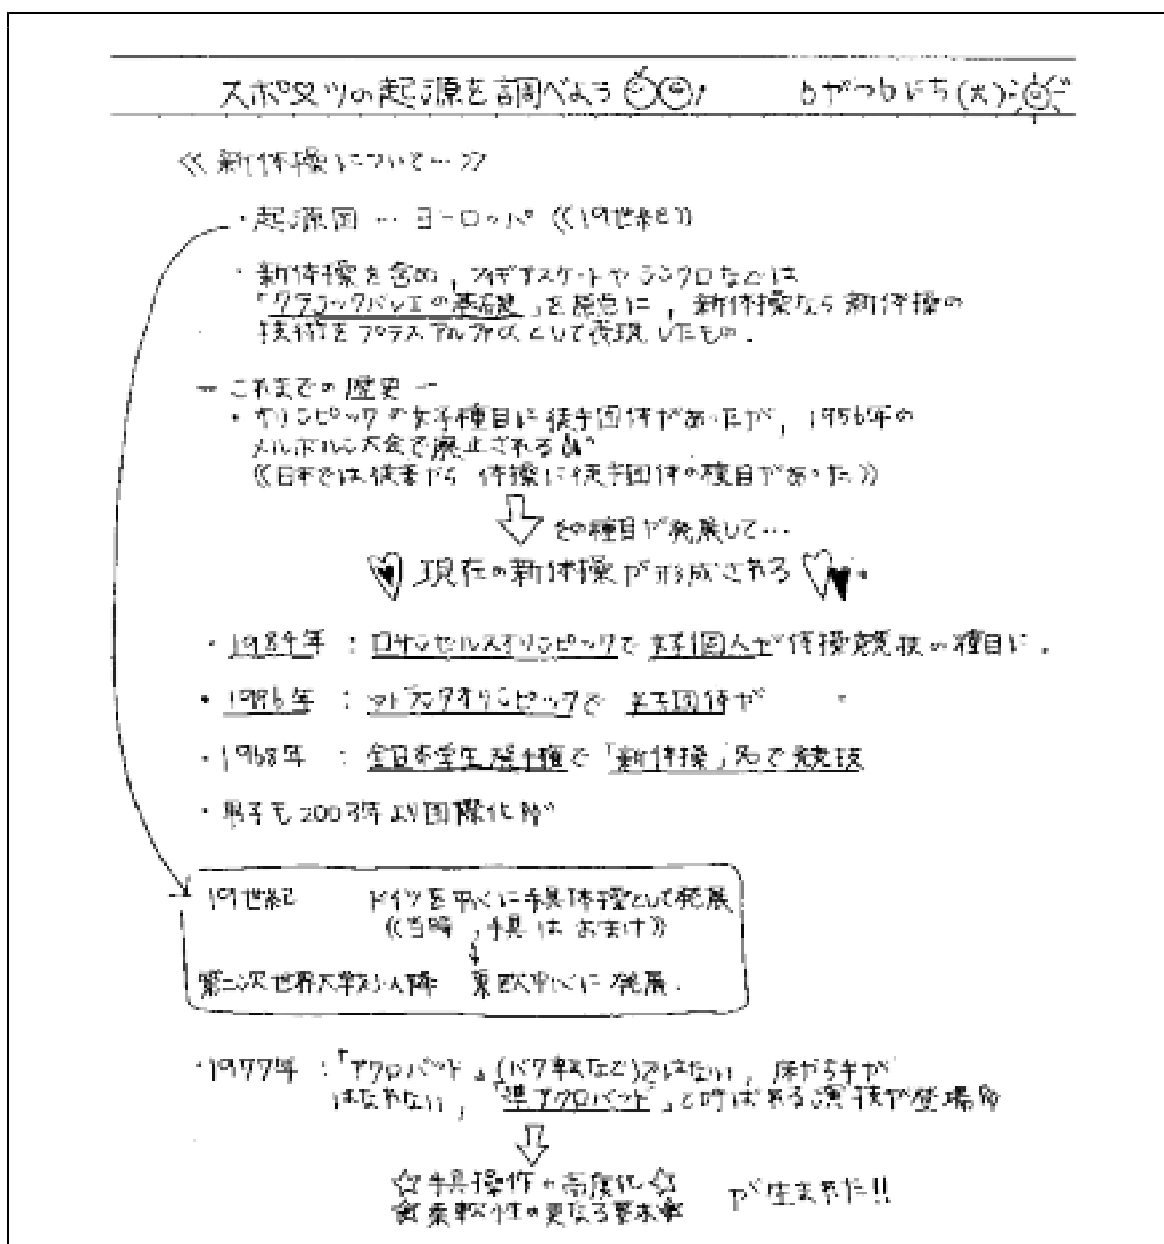 スポーツの起源を調べよう 6がつ6にち(火)
《新体操について…》
・起源国 … ヨーロッパ 《19世紀》
・新体操を含め、フィギアスケートやシンクロなどは
「クラシックバレエの基礎」を原点に、新体操なら新体操の
技術をプラスアルファαとして表現したもの.
ー これまでの歴史 ー
・オリンピックの女子種目に徒手団体があったが、1956年の
メルボルン大会で廃止される
《日本では従来から 体操に徒手団体の種目があった》
その種目が発展して…
現在の新体操が形成される
・1984年 : ロサンゼルスオリンピックで 女子個人が体操競技の種目に.
・1996年 : アトランタオリンピックで 女子団体が 〃
・1968年 : 全日本学生選手権で「新体操」名で競技
・男子も2003年より国際化
19世紀 ドイツを中心に手具体操として発展
《当時、手具は おまけ》
第二次世界大戦以降 東欧中心に発展.
・1977年 :「アクロバット」(バク転など)ではない、床から手が
はなれない、「準アクロバット」と呼ばれる演技が登場
☆手具操作の高度化☆
★柔軟性の更なる要求★ が生まれた!!